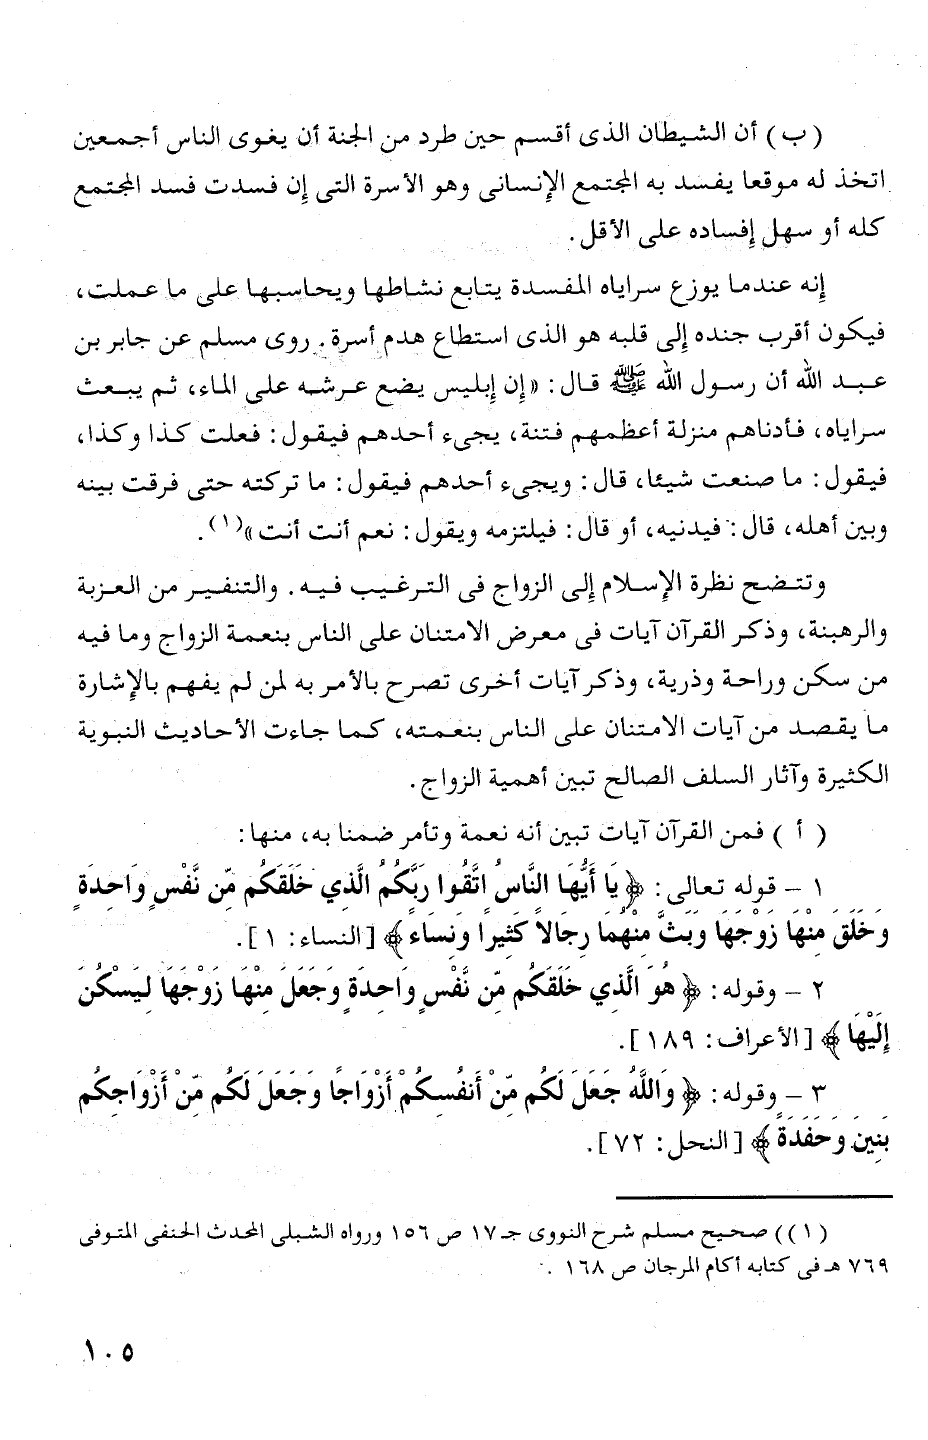 (ب) أن الشيطان الذى أقسم حين طرد من الجنة أن يغوى الناس أجمعين
اتخذ له موقعا يفسد به المجتمع الإنسانى وهو الأسرة التى إن فسدت فسد المجتمع
كله أو سهل إفساده على الأقل.
إنه عندما يوزع سراياه المفسدة يتابع نشاطها ويحاسبها على ما عملت،
فيكون أقرب جنده إلى قلبه هو الذى استطاع هدم أسرة. روى مسلم عن جابر بن
عبد الله أن رسول الله ﷺ قال: «إن إبليس يضع عرشه على الماء، ثم يبعث
سراياه، فأدناهم منزلة أعظمهم فتنة، يجىء أحدهم فيقول: فعلت كذا وكذا،
فيقول: ما صنعت شيئا، قال: ويجىء أحدهم فيقول: ما تركته حتى فرقت بينه
وبين أهله، قال: فيدنيه، أو قال: فيلتزمه ويقول: نعم أنت أنت»(١).
وتتضح نظرة الإسلام إلى الزواج فى الترغيب فيه. والتنفير من العزبة
والرهبنة، وذكر القرآن آيات فى معرض الامتنان على الناس بنعمة الزواج وما فيه
من سكن وراحة وذرية، وذكر آيات أخرى تصرح بالأمر به لمن لم يفهم بالإشارة
ما يقصد من آيات الامتنان على الناس بنعمته، كما جاءت الأحاديث النبوية
الكثيرة وآثار السلف الصالح تبين أهمية الزواج.
( أ ) فمن القرآن آيات تبين أنه نعمة وتأمر ضمنا به، منها:
١ – قوله تعالى: ﴿يَا أَيُّهَا النَّاسُ اتَّقُوا رَبَّكُمُ الَّذِي خَلَقَكُم مِّن نَّفْسٍ وَاحِدَةٍ
وَخَلَقَ مِنْهَا زَوْجَهَا وَبَثَّ مِنْهُمَا رِجَالاً كَثِيرًا وَنِسَاءً﴾ [النساء: ١].
٢ – وقوله: ﴿هُوَ الَّذِي خَلَقَكُم مِّن نَّفْسٍ وَاحِدَةٍ وَجَعَلَ مِنْهَا زَوْجَهَا لِيَسْكُنَ
إِلَيْهَا﴾ [الأعراف: ١٨٩].
٣ – وقوله: ﴿وَاللَّهُ جَعَلَ لَكُم مِّنْ أَنفُسِكُمْ أَزْوَاجًا وَجَعَلَ لَكُم مِّنْ أَزْوَاجِكُم
بَنِينَ وَحَفَدَةً﴾ [النحل: ٧٢].
(١)) صحيح مسلم شرح النووى جـ ١٧ ص ١٥٦ ورواه الشبلى المحدث الحنفى المتوفى
٧٦٩ هـ فى كتابه أكام المرجان ص ١٦٨ .
١٠٥